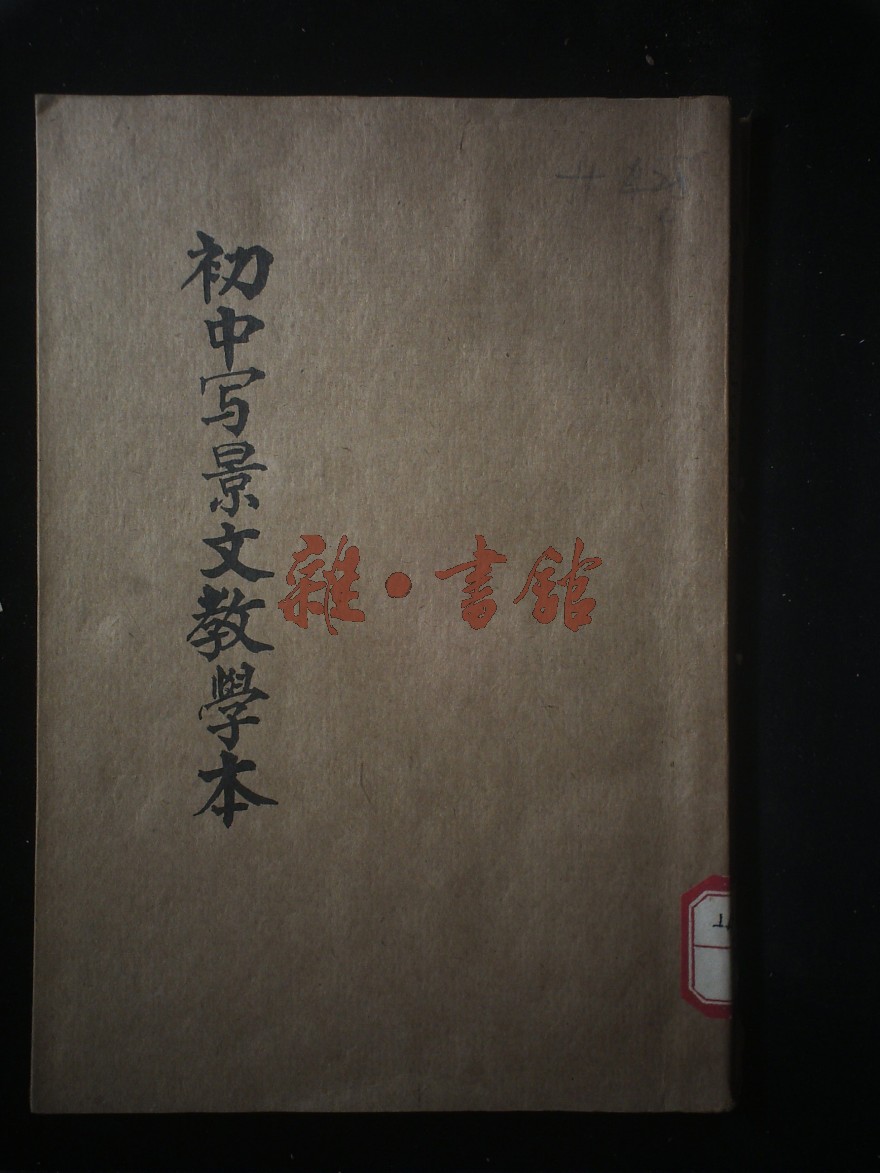 初中写景文教學本
雜·書舘